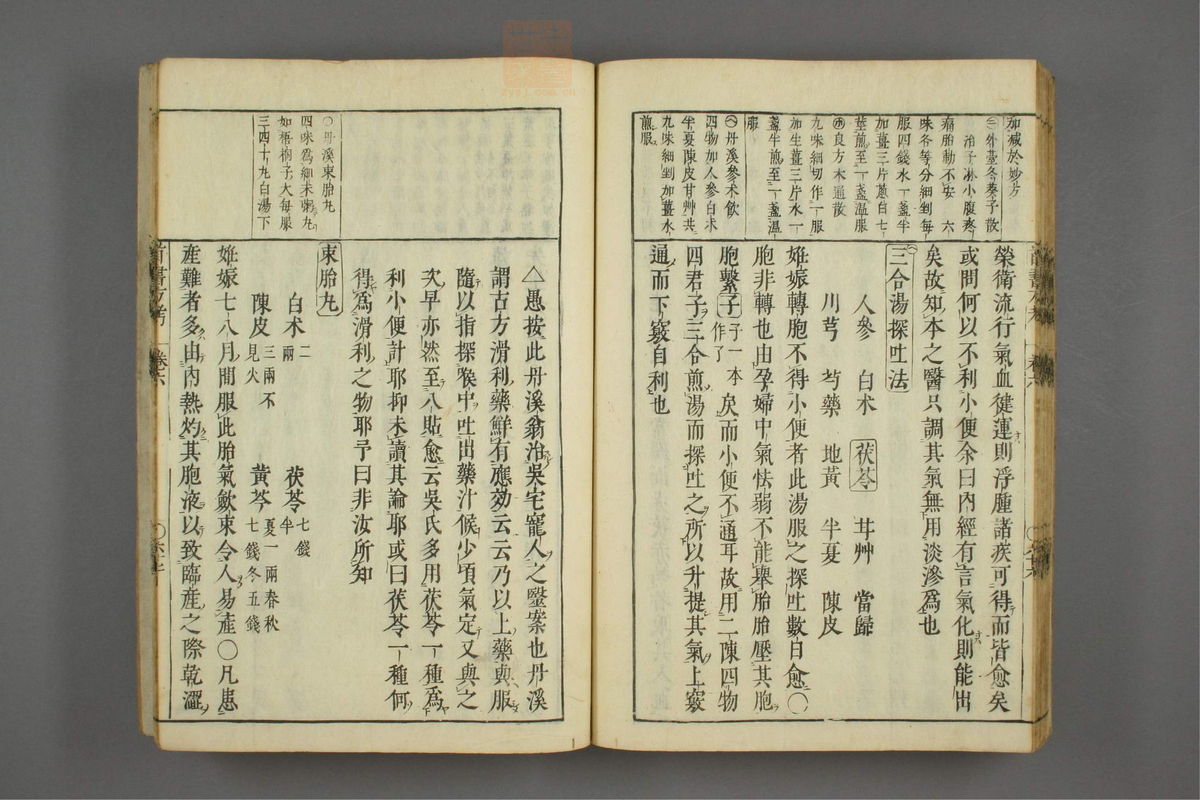 加減於妙方
㊂外臺冬葵子散
治子淋小腹疼
痛胎動不安 六
味各等分細剉每
服四錢水一盞半
加薑三片蔥白七
莖煎至一盞溫服
良方木通散
九味細切作一服
加生薑三片水一
盞半煎至一盞溫
服
丹溪參朮飲
四物加人參白朮
半夏陳皮甘艸共
九味細剉加薑水
煎服
榮衛流行氣血健運則浮腫諸疾可得而皆愈矣
或問何以不利小便余曰內經有言氣化則能出
矣故知本之醫只調其氣無用淡滲爲也
三合湯探吐法
人參 白朮 茯苓 甘艸 當歸
川芎 芍藥 地黃 半夏 陳皮
姙娠轉胞不得小便者此湯服之探吐數自愈〇
胞非轉也由孕婦中氣怯弱不能舉胎胎壓其胞
胞繫子子一本作了矣而小便不通耳故用二陳四物
四君子三合煎湯而探吐之所以升提其氣上竅
通而下竅自利也
〇丹溪束胎丸
四味爲細末粥丸
如梧桐子大每服
三四十丸白湯下
△愚按此丹溪翁治吳宅寵人之醫案也丹溪
謂古方滑利藥鮮有應効云云乃以上藥與服
隨以指探喉中吐出藥汁候少頃氣定又與之
次早亦然至八貼愈云吳氏多用茯苓一種爲
利小便計耶抑未讀其論耶或曰茯苓一種何
得爲滑利之物耶予曰非汝所知
束胎丸
白朮二兩 茯苓七錢半
陳皮三兩不見火 黃芩夏一兩春秋七錢冬五錢
姙娠七八月間服此胎氣歛束令人易產〇凡患
產難者多由內熱灼其胞液以致臨產之際乾澀